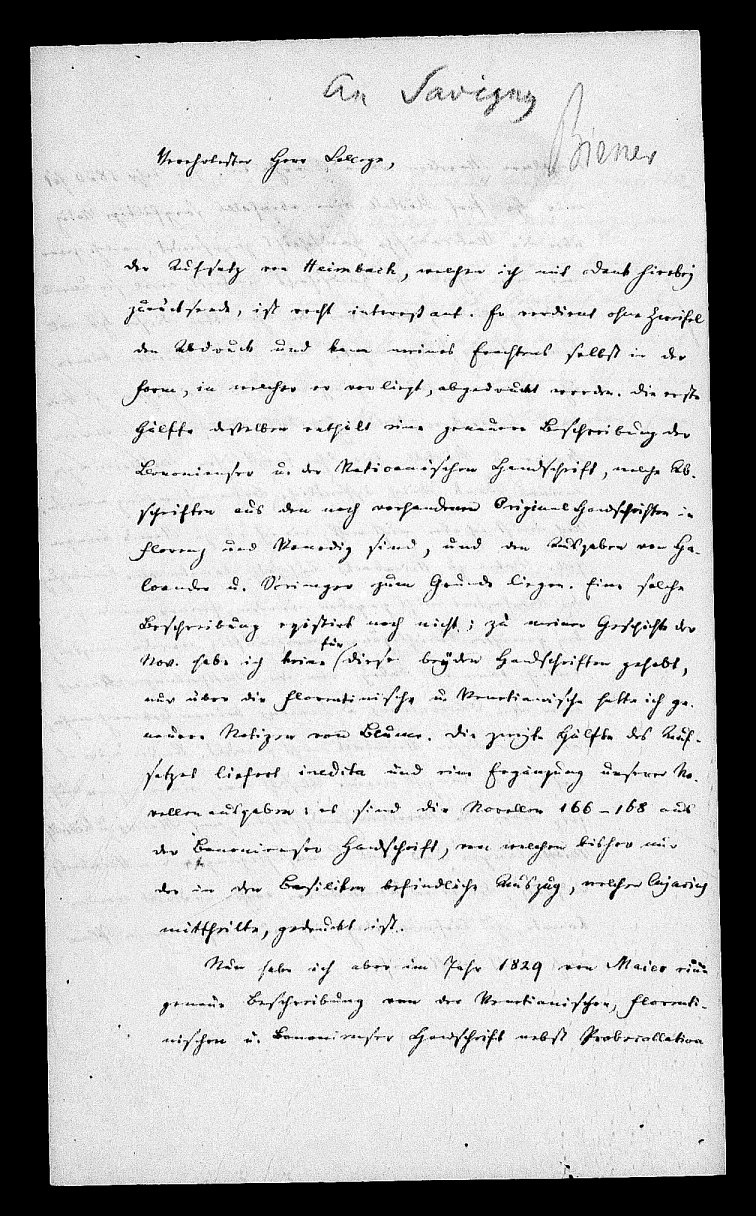 An Savigny
Biener
Verehrtester Herr College,
der Aufsatz von Heimbach, welchen ich mit Dank hierbey
zurücksende, ist recht interessant. Er verdient ohne Zweifel
den Abdruck und kann meines Erachtens selbst in der
Form, in welcher er vorliegt, abgedruckt werden. Die erste
Hälfte desselben enthält eine genauere Beschreibung der
Bononienser u. der Vaticanischen Handschrift, welche Ab-
schriften aus den noch vorhandenen Originalhandschriften in
Florenz und Venedig sind, und den Ausgaben von Ha-
loander u. Scrimger zum Grunde liegen. Eine solche
Beschreibung existirt noch nicht; zu meiner Geschichte der
Nov. habe ich keine für diese beyden Handschriften gehabt,
nur über die Florentinische u. Venetianische hatte ich ge-
nauere Notizen von Blume. Die zweite Hälfte des Auf-
satzes liefert inedita und eine Ergänzung unserer No-
vellenausgaben; es sind die Novellen 166–168 aus
der Bononienser Handschrift, von welchen bisher nur
der in den Basiliken befindliche Auszug, welchen Cujacius
mittheilte, gedruckt ist.
Nun habe ich aber im Jahr 1829 von Maier eine
genaue Beschreibung von der Venetianischen, Florenti-
nischen u. Bononienser Handschrift nebst Probecollation